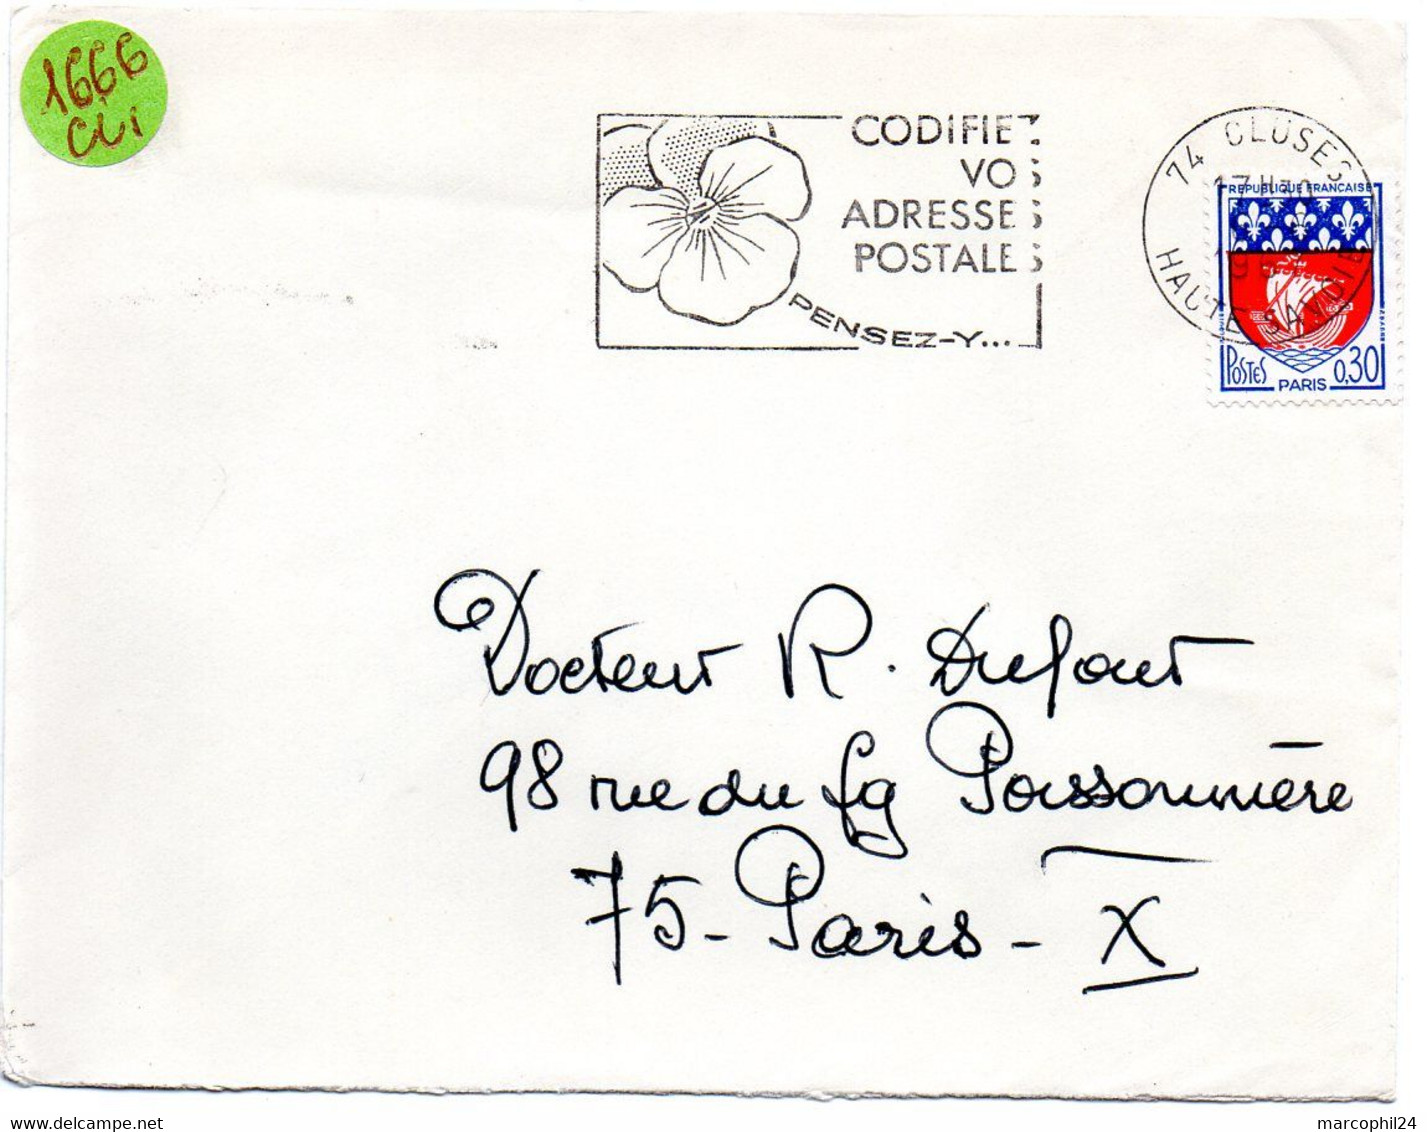 1666
CLI
CODIFIEZ
VOS
ADRESSES
POSTALES
PENSEZ-Y...
74 CLUSES
17H30
HAUTE SAVOIE
REPUBLIQUE FRANCAISE
POSTES 0,30
PARIS
Docteur R. Dufour
98 rue du fg Poissonnière
75 - Paris - X
www.delcampe.net
marcophil24